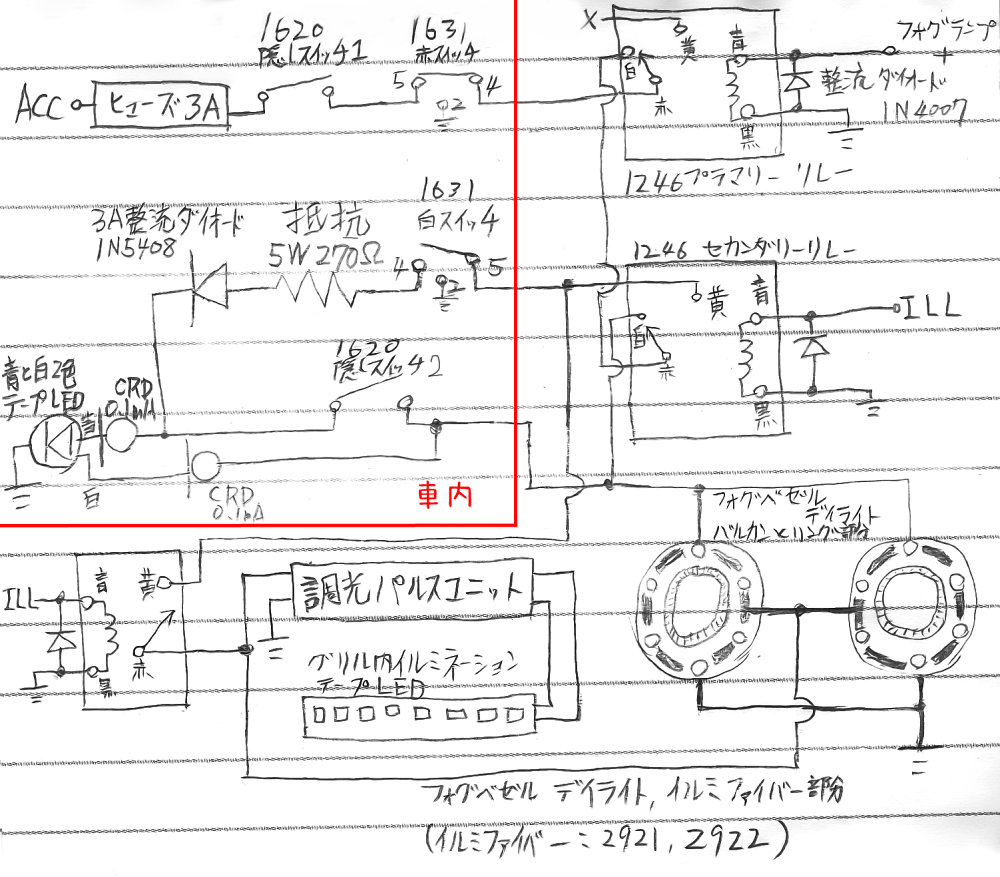 1620
隠しスイッチ1
1631
赤スイッチ
ACC
ヒューズ3A
5
4
2
X
黄
青
白
赤
黒
フォグランプ
+
整流ダイオード
1N4007
1246プラマリーリレー
3A整流ダイオード
1N5408
抵抗
5W270Ω
1631
白スイッチ
4
5
2
1246 セカンダリーリレー
黄
青
白
赤
黒
ILL
1620
隠しスイッチ2
青と白2色
テープLED
CRD
青
白
CRD
車内
フォグベゼル
デイライト
バルカンとリング部分
ILL
青
黄
赤
黒
調光パルスユニット
グリル内イルミネーション
テープLED
フォグベゼル デイライト,イルミファイバー部分
(イルミファイバー:2921,2922)